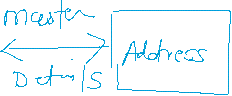 master
Details
Address